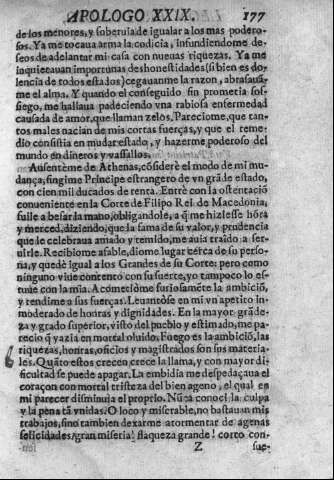 APOLOGO XXIX. 177
de los menores, y soberuia de igualar a los mas podero-
sos. Ya me tocaua arma la codicia, infundiendome de-
seos de adelantar mi casa con nueuas riquezas. Ya me
inquietauan importunas deshonestidades (si bien es do-
lencia de todos estados) cegauanme la razon, abrasauã-
me el alma. Y quando el conseguido fin prometia sos-
siego, me hallaua padeciendo vna rabiosa enfermedad
causada de amor, que llaman zelos. Pareciome, que tan-
tos males nacian de mis cortas fuerças, y que el reme-
dio consistia en mudar estado, y hazerme poderoso del
mundo en dineros y vassallos.
Ausentème de Athenas, cõsiderè el modo de mi mu-
dança, fingime Principe estrangero de vn grã de estado,
con cien mil ducados de renta. Entrè con la ostentaciò
conueniente en la Corte de Filipo Rei de Macedonia,
fuile a besar la mano, obligandole, a q̃ me hiziesse hõra
y merced, diziendo, que la fama de su valor, y prudencia
que le celebraua amado y temido, me auia traido a ser-
uirle. Recibiome afable, diome lugar cerca de su perso-
na, y quedè igual a los Grandes de su Corte: pero como
ninguno viue contento con su suerte, yo tampoco lo es-
tuue con la mia. Acometiòme furiosamẽte la ambiciõ,
y rendime a sus fuerças. Leuantòse en mi vn apetito in-
moderado de honras y dignidades. En la mayor grãde-
za y grado superior, visto del pueblo y estimado, me pa-
recio q̃ yazia en mortal oluido. Fuego es la ambiciõ, las
riquezas, honras, oficios y magistrados son sus materia-
les. Quãto estos crecen crece la llama, y con mayor di-
ficultad se puede apagar. La embidia me despedaçaua el
coraçon con mortal tristeza del bien ageno, el qual en
mi parecer disminuia el proprio. Nũca conoci la culpa
y la pena tã vnidas. O loco y miserable, no bastauan mis
trabajos, sino tambien dexarme atormentar de agenas
felicidades! gran miseria! flaqueza grande! corto con-
Z sue-